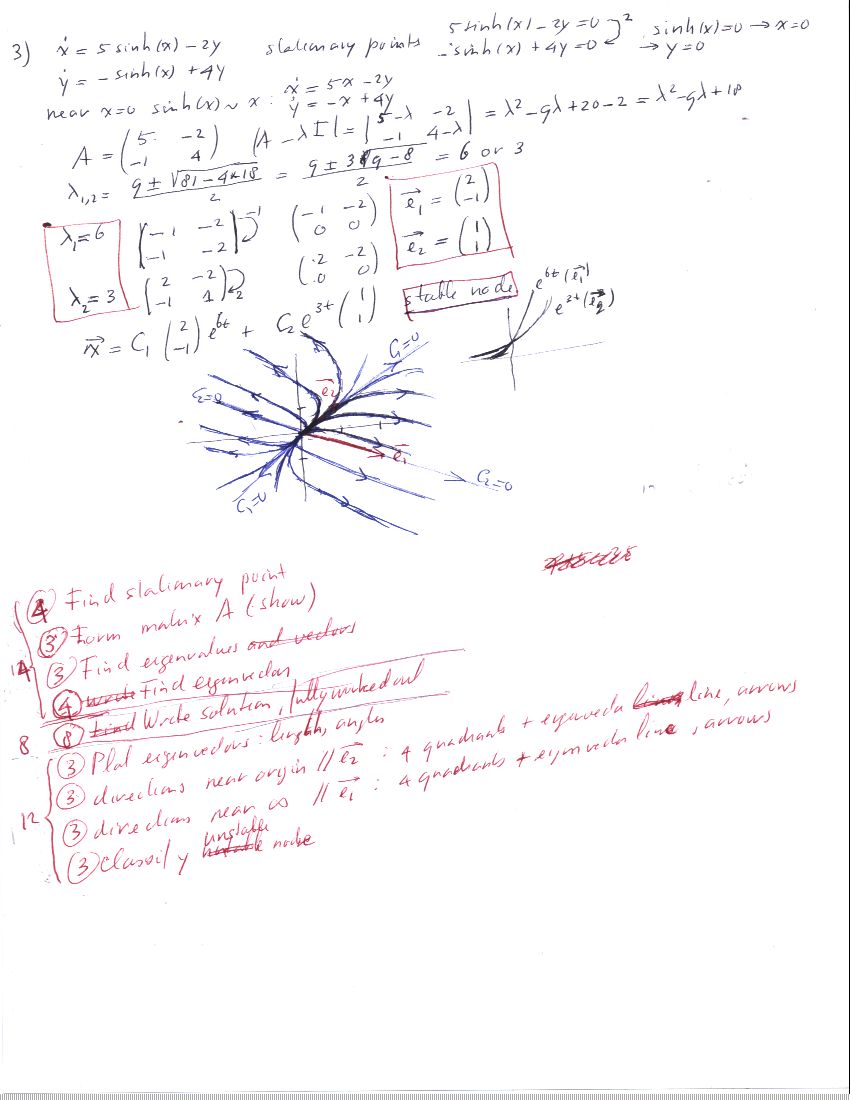 3) ẋ = 5 sinh(x) - 2y   stationary points   5 sinh(x) - 2y = 0   2   sinh(x) = 0 → x = 0
ẏ = - sinh(x) + 4y   - sinh(x) + 4y = 0   → y = 0
near x=0 sinh(x) ~ x : ẋ = 5x - 2y
ẏ = -x + 4y
A = (5 -2
-1 4)   |A - λI| = |5-λ -2
-1 4-λ| = λ² - 9λ + 20 - 2 = λ² - 9λ + 18
λ₁,₂ = (9 ± √81 - 4*18)/2 = (9 ± 3√9 - 8)/2 = 6 or 3
λ₁ = 6   [-1 -2
-1 -2] -1   (-1 -2
0 0)   e⃗₁ = (2
-1)
λ₂ = 3   [2 -2
-1 1] 2   (2 -2
0 0)   e⃗₂ = (1
1)
stable node
x⃗ = C₁ (2
-1) e^6t + C₂ e^3t (1
1)
e^6t (e⃗₁)
e^2t (e⃗₂)
C₁=0
C₂=0
e⃗₂
e⃗₁
C₂=0
C₁=0
14
4 Find stationary point
3 Form matrix A (show)
3 Find eigenvalues and vectors
4 Write Find eigenvector
8 8 Find Write solution, fully worked out
12
3 Plot eigenvectors: length, angles
3 directions near origin // e⃗₂ : 4 quadrants + eigenvector line, arrows
3 directions near ∞ // e⃗₁ : 4 quadrants + eigenvector line, arrows
3 Classify unstable node